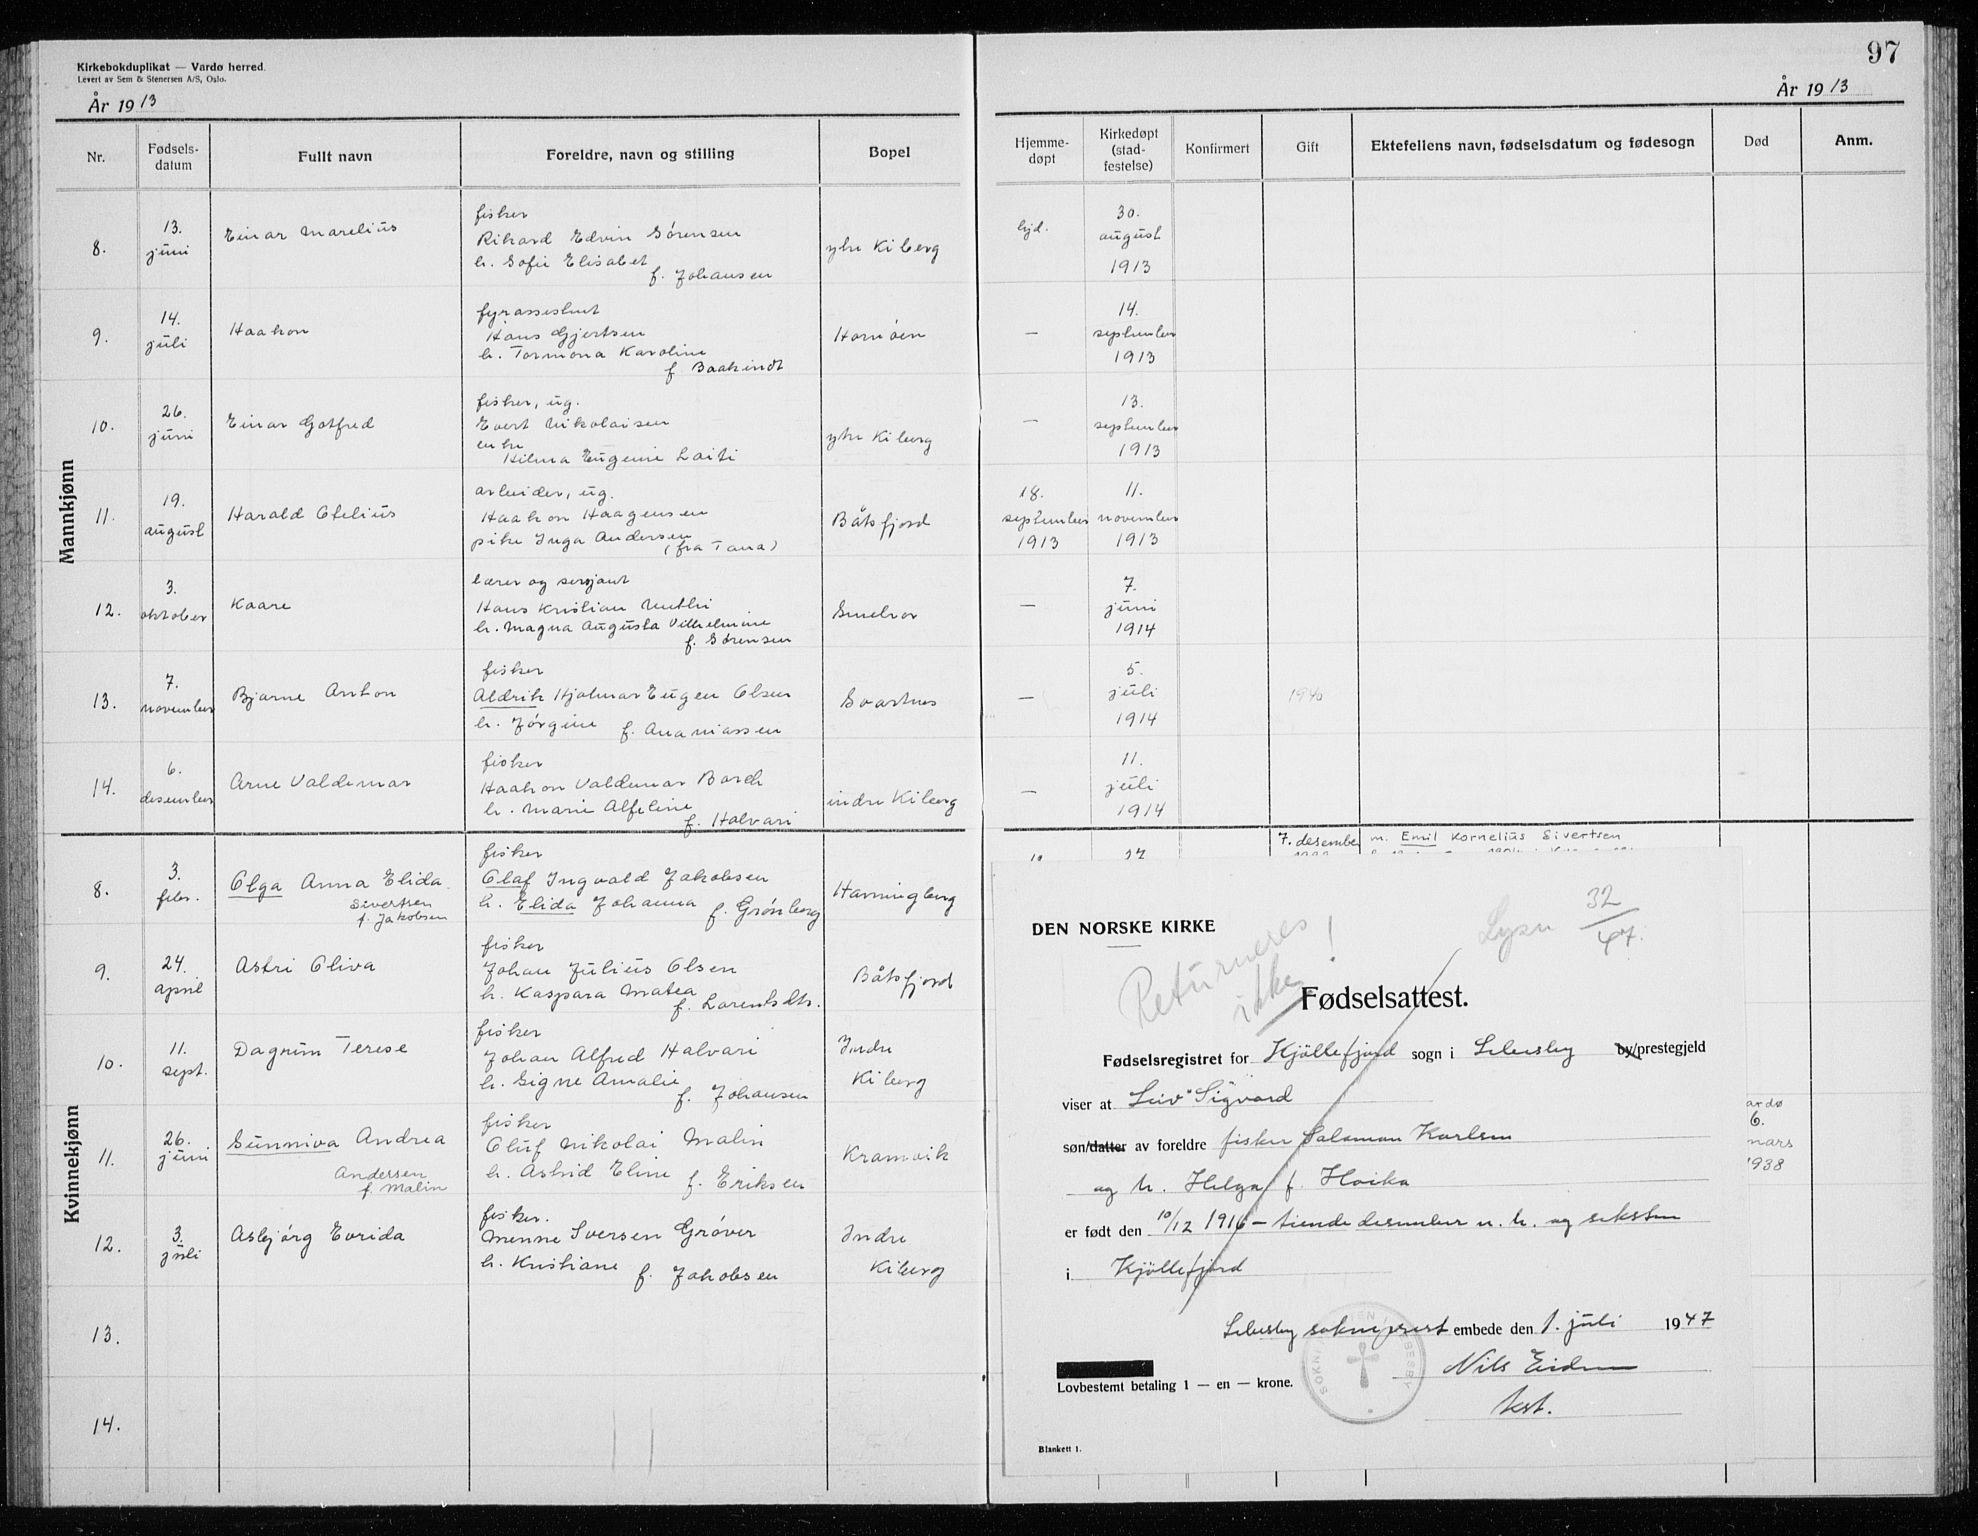 Kirkebokduplikat — Vardø herred.
Levert av Sem & Stenersen A/S, Oslo.
År 1913
Nr.
Fødsels-
datum
Fullt navn
Foreldre, navn og stilling
Bopel
Mannkjønn
8.
13.
juni
Einar Marelius
fisker
Rikard Edvin Sørensen
h. Sofie Elisabet
f. Johansen
ytre Kiberg
9.
14.
juli
Haakon
fyrassistent
Hans Gjertsen
h. Tormona Karoline
f. Baakindt
Hornøen
10.
26.
juni
Einar Gotfred
fisker, ug.
Evert Nikolaisen
enke
Hilma Eugenie Laiti
ytre Kiberg
11.
19.
august
Harald Ofelius
arbeider, ug.
Haakon Haagensen
pike Inga Andersen
(fra Tana)
Båtsfjord
12.
3.
oktober
Kaare
lærer og sersjant
Hans Kristian
h. Magna Augusta Vilhelmine
f. Sørensen
Smelror
13.
7.
november
Bjarne Anton
fisker
Aldrik Hjalmar Eugen Olsen
h. Jørgine f. Ananiassen
Svartnes
14.
6.
desember
Arne Valdemar
fisker
Haakon Valdemar Borch
h. Marie Alfeline
f. Halvari
indre Kiberg
Kvinnekjønn
8.
3.
febr.
Olga Anna Elida
Sivertsen
f. Jakobsen
fisker
Olaf Ingvald Jakobsen
h. Elida Johanna f. Grønberg
Havningberg
9.
24.
april
Astri Oliva
fisker
Johan Julius Olsen
h. Kaspara Matea
f. Lorentsdtr.
Båtsfjord
10.
11.
sept.
Dagrun Terese
fisker
Johan Alfred Halvari
h. Signe Amalie
f. Johansen
Indre
Kiberg
11.
26.
juni
Sunniva Andrea
Andersen
f. Malin
fisker
Oluf Nikolai Malin
h. Astrid Eline f. Eriksen
Kramvik
12.
3.
juli
Asbjørg Evrida
fisker.
Menne Iversen Grøver
h. Kristiane f. Jakobsen
Indre
Kiberg
13.
14.
97
År 1913
Hjemme-
døpt
Kirkedøpt
(stad-
festelse)
Konfirmert
Gift
Ektefellens navn, fødselsdatum og fødesogn
Død
Anm.
hjd.
30.
august
1913
—
14.
september
1913
—
13.
september
1913
18.
september
1913
11.
november
1913
—
7.
juni
1914
—
5.
juli
1914
1940
—
11.
juli
1914
7. desember
m. Emil Kornelius Sivertsen
DEN NORSKE KIRKE
Returneres
ikke!
Lysn 32/47.
Fødselsattest.
Fødselsregistret for Kjöllefjord sogn i Lebesby by/prestegjeld
viser at Leiv Sigvard
søn/datter av foreldre fisker Salamon Karlsen
og h. Helga f. Hoika
er født den 10/12 1916 – tiende desember n. h. og seksten
i Kjöllefjord
Lebesby sokneprest embede den 1. juli 1947
Nils
Lovbestemt betaling 1 — en — krone.
Blankett 1.
6.
mars
1938